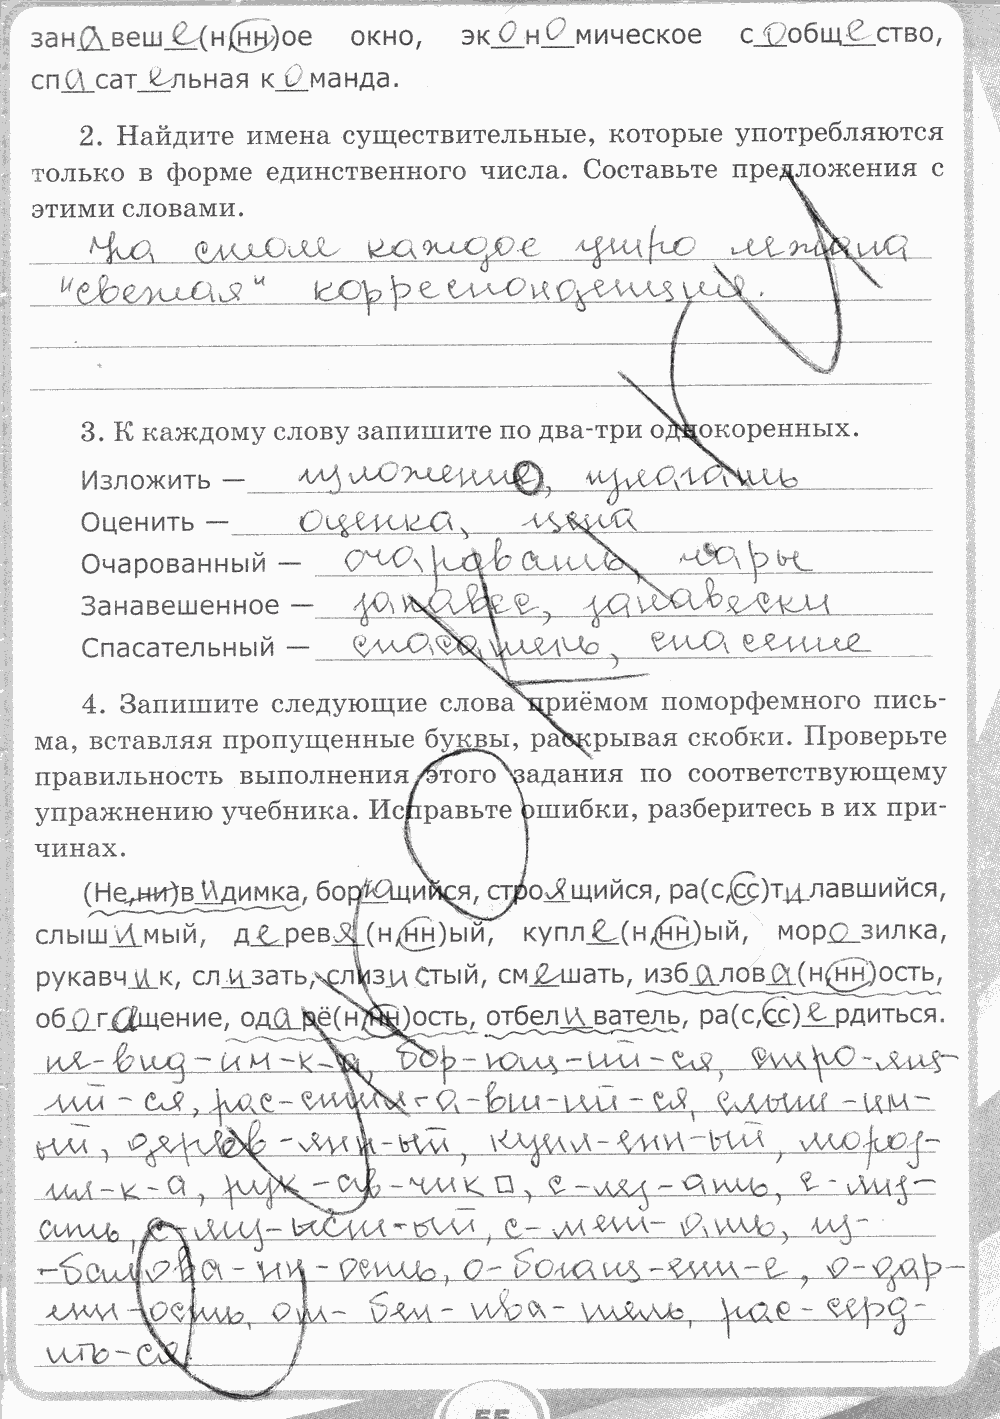 зан а веш е (н,нн)ое окно, эк о н о мическое с о общ е ство,
сп а сат е льная к о манда.
2. Найдите имена существительные, которые употребляются
только в форме единственного числа. Составьте предложения с
этими словами.
На столе каждое утро лежала
"свежая" корреспонденция.
3. К каждому слову запишите по два-три однокоренных.
Изложить — изложение, излагать
Оценить — оценка, цена
Очарованный — очаровать, чары
Занавешенное — занавес, занавески
Спасательный — спасатель, спасение
4. Запишите следующие слова приёмом поморфемного пись-
ма, вставляя пропущенные буквы, раскрывая скобки. Проверьте
правильность выполнения этого задания по соответствующему
упражнению учебника. Исправьте ошибки, разберитесь в их при-
чинах.
(Не,ни)в и димка, бор ю щийся, стро я щийся, ра(с,сс)т и лавшийся,
слыш и мый, д е рев я (н,нн)ый, купл е (н,нн)ый, мор о зилка,
рукавч и к, сл и зать, слиз и стый, см е шать, изб а лов а (н,нн)ость,
об о г а щение, од а рё(н,нн)ость, отбел и ватель, ра(с,сс) е рдиться.
не-вид-им-к-а, бор-ющ-ий-ся, стро-ящ-
ий-ся, рас-стил-а-вш-ий-ся, слыш-им-
ый, дерев-янн-ый, купл-енн-ый, мороз-
ил-к-а, рук-ав-чик□, с-лез-ать, с-лиз-
ать, с-лиз-ыст-ый, с-меш-ать, из-
-балова-нн-ость, о-богащ-ени-е, о-дар-
енн-ость, от-бел-ива-тель, рас-серд-
ить-ся.
55